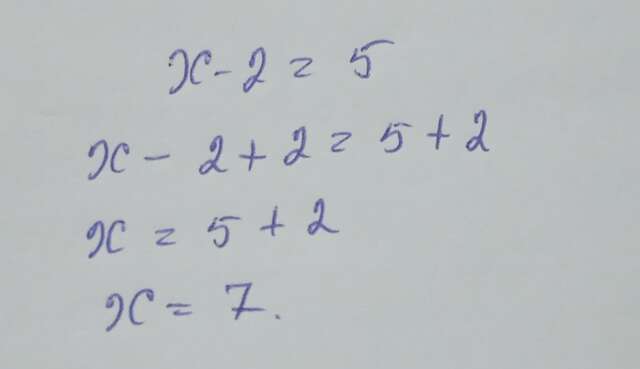 x - 2 = 5
x - 2 + 2 = 5 + 2
x = 5 + 2
x = 7.